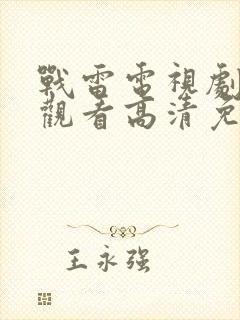 戰雷電視劇
觀看高清免
王永强